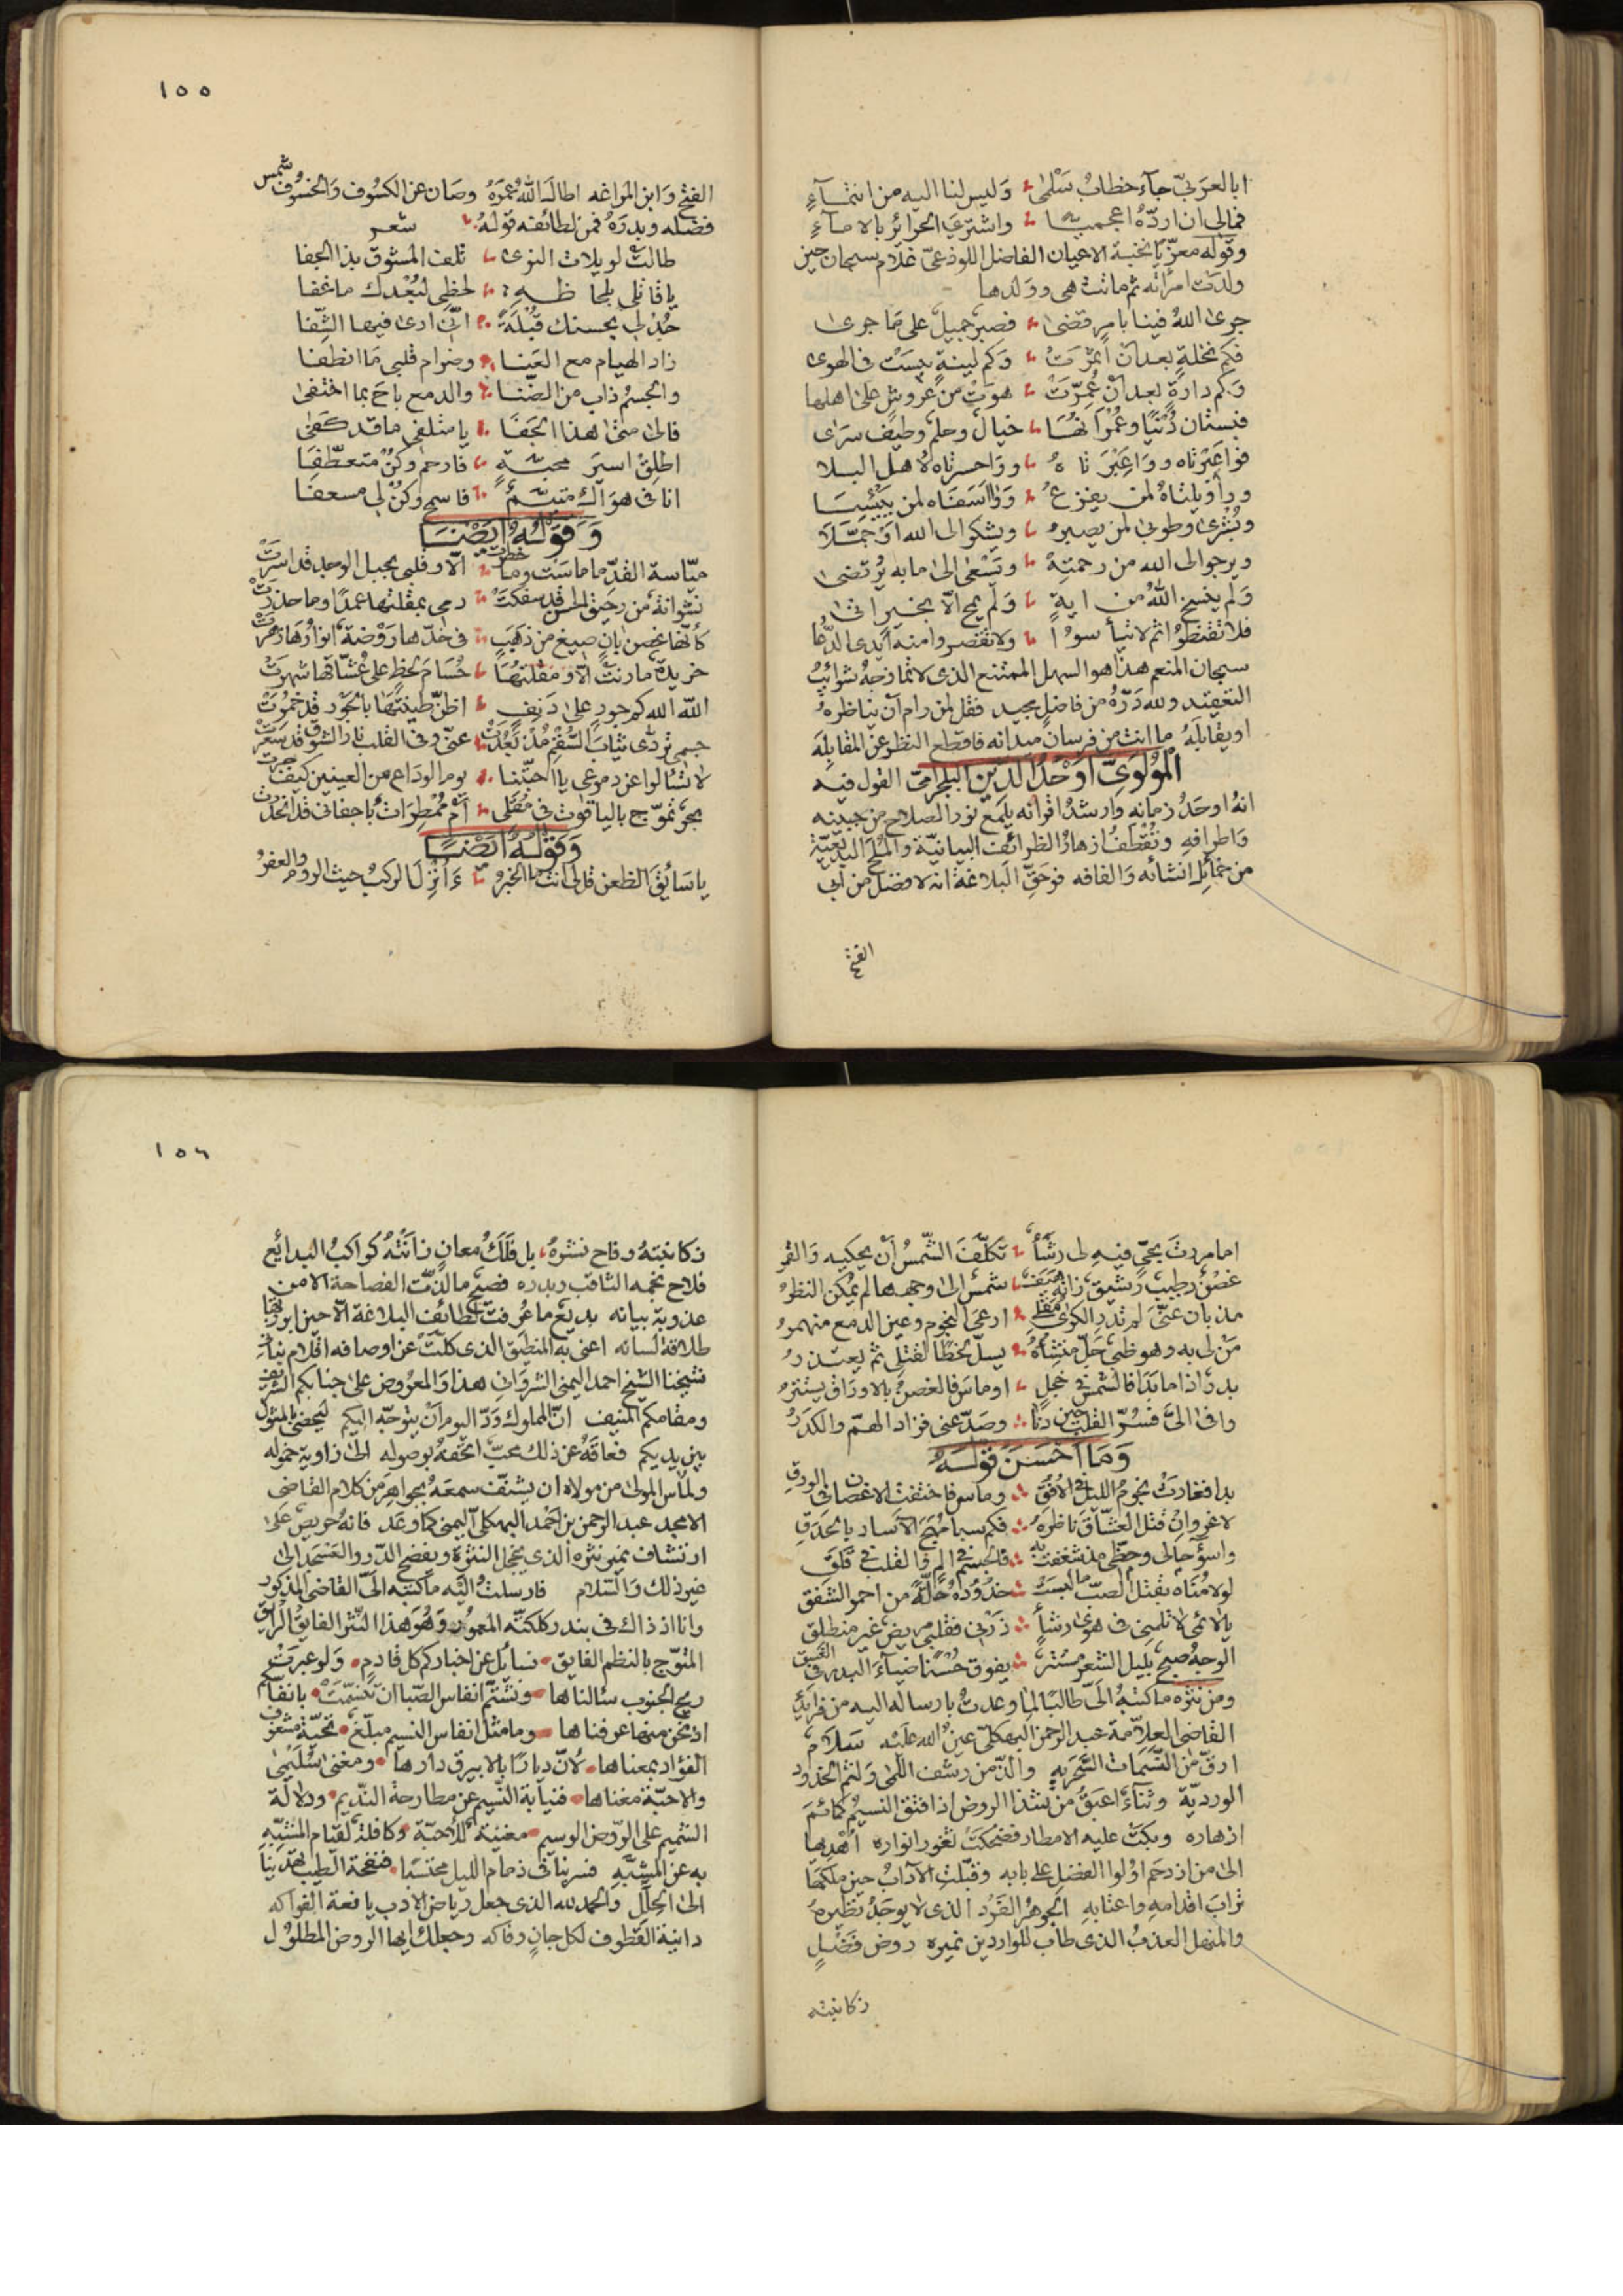 ابا العربيّ جآء خطابُ سَلْمٰى ؞ وَليس لنا اليه من انتمآءٍ
فمالى ان اردّهُ اعجميّا ؞ واشترىَ الحرائرَ بالامآءِ
وقوله معزّيا نخبة الاعيان الفاضل اللوذعىّ غلام سبحان حين
ولدت امرأته ثم ماتت هى وولدها
جرى اللهُ فينا بامرٍ قضىٰ ؞ فصبرٌ جميلٌ على مَا جرىٰ
فكم نخلةٍ بعد ان اثمرَتْ ؞ وَكم لينةٍ يبسَتْ فى الهوى
وَكم دارةٍ بعد ان عُمِّرَتْ ؞ هوَتْ من عروشٍ على اهلها
فبستان دُنْيَا وعُمْرَانُهَا ؞ خيالٌ وحلمٌ وطيفٌ سرَى
فواعَبْرَتاه وواعِبْرَتاهُ ؞ وواحسرتاه لاهل البلا
وواويلتاهُ لمن يفزعُ ؞ وَوااسَفَاه لمن يَيْئَسَا
وبُشْرىٰ وطوبىٰ لمن يصبرُ ؞ ويشكو الى الله اذ حمّلا
ويرجو الى الله من رحمتِهْ ؞ وتَسْعٰى الىٰ ما به يُرتضىٰ
وَلم ينسخ اللهُ من ايةٍ ؞ وَلم يمح الّا بخيرٍ اتىٰ
فلا تقنطوا ثم لا تيأسوُا ؞ ولا تقصروا منه ايدى الدُّعا
سبحان المنعم هذا هو السهل الممتنع الذى لا تمازجهُ شوائبُ
التعقيد ولله دَرّهُ من فاضلٍ مجيد فقل لمن رام ان يناظرهُ
او يقابلَهُ ما انت من فرسان ميدانه فاقطع النظر عن المقابلة
المْوُلَوِىّ اَوْحَدُ الدّين البلجرامىّ القول فيه
انهُ اوحَدُ زمانه وارشدُ اقرانه يلمَع نور الصلاح من جبينه
وَاطرافهِ وتُقْطَفُ ازهارُ الظرائف البيانيّة والمُلَح البديعيّة
من خمائِل انشائه وَالفافه فوحَقِّ البَلاغة انه لافضل من ابى
الفتح
١٥٥
الفتح وَابن المراغه اطالَ اللهُ عُمرَهُ وصَان عن الكسُوف وَالخسُوف شمس
فضله وبدرَهُ فمن لطائفه قولهُ ؞ شعر
طالتْ لويلات النوىٰ ؞ تلف المشوق بذا الجفا
يا قاتلى بلحاظهِ ؞ لحظى لبُعْدك ما غفا
جُدْ لى بحسنك قُبْلَةً ؞ انّى ارىٰ فيها الشّفا
زاد الهيام مع العَنا ؞ وضرام قلبى مَا انطفا
والجسُم ذاب من الضّنا ؞ والدمع باحَ بما اختفىٰ
فالىٰ متىٰ هذا الجَفَا ؞ يا متلفى ما قد كفىٰ
اطلِقْ اسيرَ محبّةٍ ؞ فارحم وكُنْ متعطّفَا
انا فى هوَاكَ متيّمٌ ؞ فاسمح وكن لى مسعفَا
وَقَوْلُهُ اَيْضًا
ميّاسة القدّ ما ماسَت وما خطرت ؞ الّا وقلبى بحبل الوجد قد اسرَتْ
نشوانة من رحيق الحسن قد سفكت ؞ دمى بمقلتها عمدًا وما حذرتْ
كأنّها غصن بانٍ صيغ من ذهَبٍ ؞ فى خدّها رَوْضة انوارُها زهرتْ
خريدة ما رنتْ الّا ومقلتهَا ؞ حُسَامَ لحظٍ على عشّاقها شهرتْ
اللّه الله كم جورٍ على دَنِفٍ ؞ اظنّ طينتَهَا بالجَوْر قد خمُرَتْ
جسمى تردّى ثيابَ السُّقْم مُذ بَعُدَتْ ؞ عنّى وفى القلب نار الشوق قد سَعَرَتْ
لا تسألوا عن دموعى يا احبّتنا ؞ يوم الوداع من العينين كيف جرت
بحرٌ تموّج بالياقوت فى مُقَلى ؞ اَمْ مُمْطِرَاتٌ باجفانى قد انحدرت
وَقَوْلُهُ اَيْضًا
يا سَائِقَ الظعن قل لى انت ما الخبرُ ؞ ءَاُنْزِلَ الركبُ حيث الورد والعفرُ
اما مررتَ بحىٍّ فيهِ لى رشَأٌ ؞ تكلّفَ الشّمسُ اَنْ يحكيه وَالقمر
غصْنٌ رطيبٌ رشيقٌ زانهُ هَيَفٌ ؞ شمسٌ الىٰ وجهها لم يُمكن النظرُ
مذ بان عنّى لم تدر الكرىٰ مُقَلى ؞ ارعَى النجوم وعين الدمع منهمرُ
مَنْ لى به وهو ظبىٌ جَلّ منشأُهُ ؞ يسلّ لحظًا لقتلى ثم يعتذرُ
بدرٌ اذا ما بَدَا فالشمسُ فى خجلٍ ؞ او ماسَ فالغصنُ بالاوراق يستترُ
وافىٰ الىَّ فسُرّ القلب حين دنا ؞ وصَدّ عنى فزاد الهمّ والكدَرُ
وَمَا اَحْسَنَ قَوْلَهُ
بدا فغارتْ نجومُ الليل فى الاُفُقِ ؞ وماس فاختفت الاغصان فى الورقِ
لا غرو اِنْ قتل العشّاقَ ناظرَهُ ؞ فكم سبا مُهَجَ الآساد بالحَدَقِ
واسوُ حالى وحظّى مذ شغفت به ؞ فالجسمُ فى الم والقلب فى قلَقٍ
لولا مُنَاهُ بقتل الصبّ ما لبسَتْ ؞ خدُودُهُ حُلّةً من احمر الشفق
يا لائمى لا تلمنِى فى هوىٰ رشأٍ ؞ ذرْنى فقلبى مريض غير منطلق
الوجهُ صبحٌ بليل الشعر مُستترٌ ؞ يفوق حُسْنًا ضياءَ البدر فى الغسق
ومن نثره ما كتبهُ الىّ طالبًا لما وعدتُ بارساله اليه من فرائدِ
القاضى العلّامة عبد الرحمن البهكلىّ عينُ الله عليه سَلامٌ
ارقّ من النّسَمات السَّحَرية والذّ من رشف اللمىٰ وَلثم الخدود
الورديّة وثناءٌ اعبَقُ من شذا الروض اذا فتق النسيمُ كمائمَ
ازهاره وبكتْ عليه الامطار فضحكتْ ثغور انواره اُهْدِيها
الىٰ من ازدحَم اوُلوا الفضل على بابه وقبّلت الآدابُ حين ملكهَا
ترابَ اقدامهِ واعتابهِ الجوهرُ الفَرْد الذى لا يوجَدُ نظيرهُ
والمنهل العذبُ الذى طاب للواردين نميره روض فَضْلٍ
زكا نبته
١٥٦
زكا نبتهُ وفاح نشرهُ بل فَلَكُ معانٍ زانَتْهُ كواكبُ البدائع
فلاح نجمه الثاقب وبدره فصيح ما لذّت الفصاحة الا من
عذوبة بيانه بديع ما عُرفت لطائف البلاغة الّا حين ابرزها
طلاقة لسانه اعنى به المنطيق الذى كلّتْ عن اوصافه اقلام
شيخنا الشيخ احمد اليمنى الشروانى هذا وَالمعرُوض على جنابكم الشريف
ومقامكم المنيف انّ المملوك وَدّ اليوم اَنْ يتوجّه اليكم ليحضى بالمثول
بين يديكم فعاقَهُ عن ذلك محبٌّ اتحَفهُ بوصوله الىٰ زاوية خموله
والمأمول من مولاه ان يشنّف سمعَهُ بجواهرَ من كلام القاضى
الامجد عبد الرحمن بن احمد البهكلى اليمنى كما وعَد فانهُ حريصٌ علىٰ
ارتشاف نمير نثره الذى يخجل النثرة ويفضح الدّر والعَسْجَد الىٰ
غير ذلك وَالسّلام فارسلتُ اليه ما كتبه الىّ القاضى المذكور
وانا اذ ذاك فى بندر كلكتّه المعمور وَهُوَ هذا النّثر الفايقُ الرايق
المتوّج بالنظم الفايق ۰ نسائل عن اخباركم كل قادمٍ ۰ وَلو عبرَتْ
ريح الجنوب سألناها ۰ ونشتمّ انفاس الصّبا ان تنسّمَتْ ۰ بانفاسكم
اذ نحن منها عرفناها ۰ وما مثل انفاس النسيم مبلّغ ۰ تحيّة مشغوف
الفؤاد بمعناها ۰ لانّ ديارًا بالابيرق دارها ۰ ومغنىٰ سُلَيْمىٰ
والاحبّة مغناها ۰ فنيابة النّسيم عن مطارحة النّديم ۰ ودلالة
الشميم على الرّوض الوسيم ۰ مغنية للاحبّة ۰ وكافلة لقيام المشبّه
به عن المشبّهِ فسر بنا فى ذمام الليل محتسبًا ۰ فنفحة الطيب تهدينا
الىٰ الحِلَلِ والحمد لله الذى جعل رياض الادب يانعة الفواكه
دانية القطوف لكل جانٍ وفاكه وجعلك ايها الروض المطلوُل